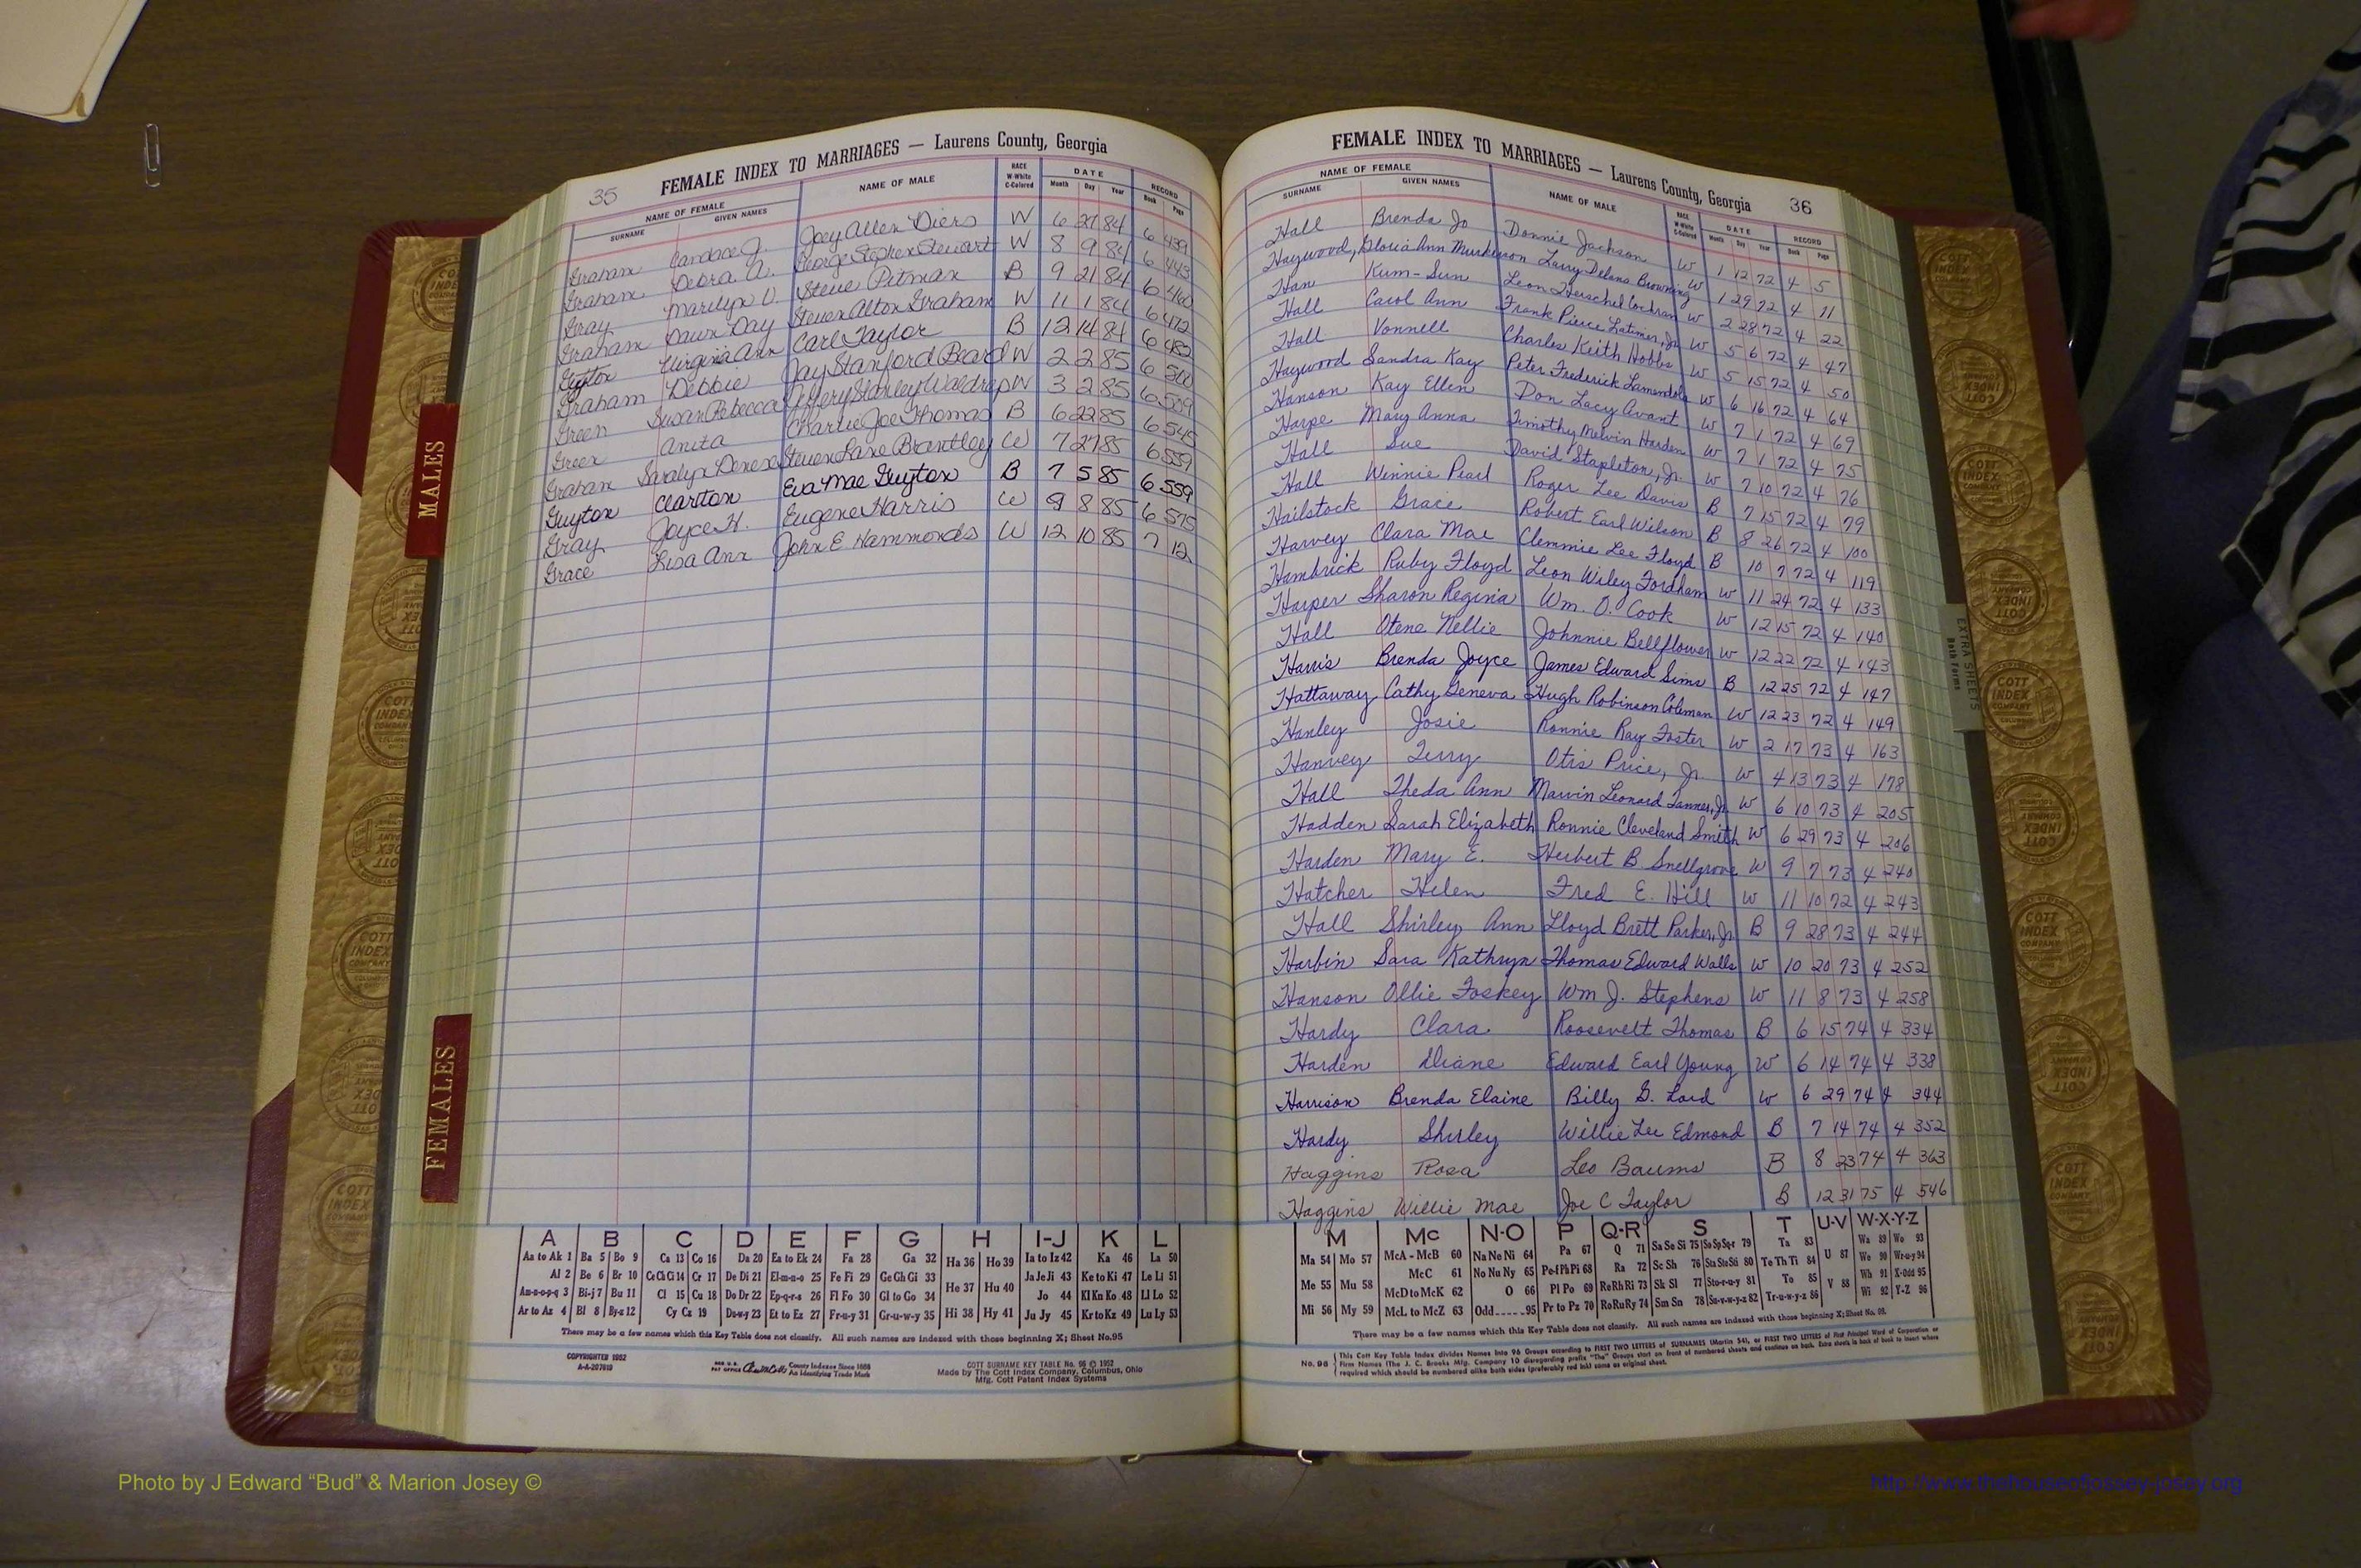 35
FEMALE INDEX TO MARRIAGES — Laurens County, Georgia
NAME OF FEMALE NAME OF MALE RACE W-White C-Colored DATE RECORD
SURNAME GIVEN NAMES Month Day Year Book Page
Graham Candace J. Joey Allen Diers W 6 27 84 6 439
Graham Debra A. George Stephen Stewart W 8 9 84 6 443
Gray Marilyn D. Steve Pitman B 9 21 84 6 460
Graham Dawn Day Steven Alton Graham W 11 1 84 6 472
Guyton Virginia Ann Carl Taylor B 12 14 84 6 482
Graham Debbie Jay Stanford Beard W 2 2 85 6 500
Green Susan Rebecca Jeffery Stanley Waldrep W 3 2 85 6 509
Green Anita Charlie Joe Thomas B 6 22 85 6 545
Graham Saralyn Denese Steven Lane Brantley W 7 27 85 6 559
Guyton Clariton Eva Mae Guyton B 7 5 85 6 559
Gray Joyce H. Eugene Harris W 9 8 85 6 575
Grace Lisa Ann John E Hammonds W 12 10 85 7 12
MALES
FEMALES
A B C D E F G H I-J K L
Aa to Ak 1 Ba 5 Bo 9 Ca 13 Co 16 Da 20 Ea to Ek 24 Fa 28 Ga 32 Ha 36 Ho 39 Ia to Iz 42 Ka 46 La 50
Al 2 Be 6 Br 10 Ce Ch Ci 14 Cr 17 De Di 21 El-m-n-o 25 Fe Fi 29 Ge Gh Gi 33 He 37 Hu 40 Ja Je Ji 43 Ke to Ki 47 Le Li 51
Am-n-o-p-q 3 Bi-j 7 Bu 11 Cl 15 Cu 18 Do Dr 22 Ep-q-r-s 26 Fl Fo 30 Gl to Go 34 Jo 44 Kl Kn Ko 48 Ll Lo 52
Ar to Az 4 Bl 8 By-z 12 Cy Cz 19 Du-w-y 23 Et to Ez 27 Fr-u-y 31 Gr-u-w-y 35 Hi 38 Hy 41 Ju Jy 45 Kr to Kz 49 Lu Ly 53
There may be a few names which this Key Table does not classify. All such names are indexed with those beginning X; Sheet No. 95
COPYRIGHTED 1952
A-A-207819
County Indexes Since 1888
An Identifying Trade Mark
COTT SURNAME KEY TABLE No. 96 © 1952
Made by The Cott Index Company, Columbus, Ohio
Mfg. Cott Patent Index Systems
FEMALE INDEX TO MARRIAGES — Laurens County, Georgia
36
NAME OF FEMALE NAME OF MALE RACE W-White C-Colored DATE RECORD
SURNAME GIVEN NAMES Month Day Year Book Page
Hall Brenda Jo Donnie Jackson W 1 12 72 4 5
Haywood, Gloria Ann Murkerson Larry Delano Browning W 1 29 72 4 11
Han Kum-Sun Leon Herschel Cochran W 2 28 72 4 22
Hall Carol Ann Frank Pierce Latimer, Jr. W 5 6 72 4 47
Hall Vonnell Charles Keith Hobbs W 5 15 72 4 50
Haywood Sandra Kay Peter Frederick Lamendola W 6 16 72 4 64
Hanson Kay Ellen Don Lacy Avant W 7 1 72 4 69
Harpe Mary Anna Timothy Melvin Harden W 7 1 72 4 75
Hall Sue David Stapleton, Jr. W 7 10 72 4 76
Hall Winnie Pearl Roger Lee Davis B 7 15 72 4 79
Hailstock Grace Robert Earl Wilson B 8 26 72 4 100
Harvey Clara Mae Clemmie Lee Floyd B 10 7 72 4 119
Hambrick Ruby Floyd Leon Wiley Fordham W 11 24 72 4 133
Harper Sharon Regina Wm. O. Cook W 12 15 72 4 140
Hall Otene Nellie Johnnie Bellflower W 12 22 72 4 143
Harris Brenda Joyce James Edward Sims B 12 25 72 4 147
Hattaway Cathy Geneva Hugh Robinson Coleman W 12 23 72 4 149
Hanley Josie Ronnie Ray Foster W 2 17 73 4 163
Hanvey Terry Otis Price, Jr. W 4 13 73 4 178
Hall Theda Ann Marvin Leonard Tanner, Jr. W 6 10 73 4 205
Hadden Sarah Elizabeth Ronnie Cleveland Smith W 6 29 73 4 206
Harden Mary E. Herbert B. Snellgrove W 9 7 73 4 240
Hatcher Helen Fred E. Hill W 11 10 72 4 243
Hall Shirley Ann Lloyd Brett Parker, Jr. B 9 28 73 4 244
Harbin Sara Kathryn Thomas Edward Walls W 10 20 73 4 252
Hanson Ollie Foskey Wm J. Stephens W 11 8 73 4 258
Hardy Clara Roosevelt Thomas B 6 15 74 4 334
Harden Diane Edward Earl Young W 6 14 74 4 338
Harrison Brenda Elaine Billy G. Lord W 6 29 74 4 344
Hardy Shirley Willie Lee Edmond B 7 14 74 4 352
Haggins Rosa Leo Baums B 8 23 74 4 363
Haggins Willie Mae Joe C Taylor B 12 31 75 4 546
EXTRA SHEETS
Both Forms
M Mc N-O P Q-R S T U-V W-X-Y-Z
Ma 54 Mo 57 McA - McB 60 Na Ne Ni 64 Pa 67 Q 71 Sa Se Si 75 So Sp Sq-r 79 Ta 83 U 87 Wa 89 Wo 93
Me 55 Mu 58 McC 61 No Nu Ny 65 Pe-f Ph Pi 68 Ra 72 Sc Sh 76 Sta Ste Sti 80 Te Th Ti 84 We 90 Wr-u-y 94
McD to McK 62 O 66 Pl Po 69 Re Rh Ri 73 Sk Sl 77 Sto-r-u-y 81 To 85 V 88 Wh 91 X-Odd 95
Mi 56 My 59 McL to McZ 63 Odd 95 Pr to Pz 70 Ro Ru Ry 74 Sm Sn 78 Su-v-w-y-z 82 Tr-u-w-y-z 86 Wi 92 Y-Z 96
There may be a few names which this Key Table does not classify. All such names are indexed with those beginning X; Sheet No. 95.
No. 96 This Cott Key Table Index divides Names into 96 Groups according to FIRST TWO LETTERS of SURNAMES (Martin 54), or FIRST TWO LETTERS of First Principal Word of Corporation or
Firm Names (The J. C. Brooks Mfg. Company 10 disregarding prefix "The" Groups start on front of numbered sheets and continue on back. Extra sheets in back of book to insert where
required which should be numbered alike both sides (preferably red ink) same as original sheet.
Photo by J Edward “Bud” & Marion Josey ©
http://www.thehouseofjossey-josey.org